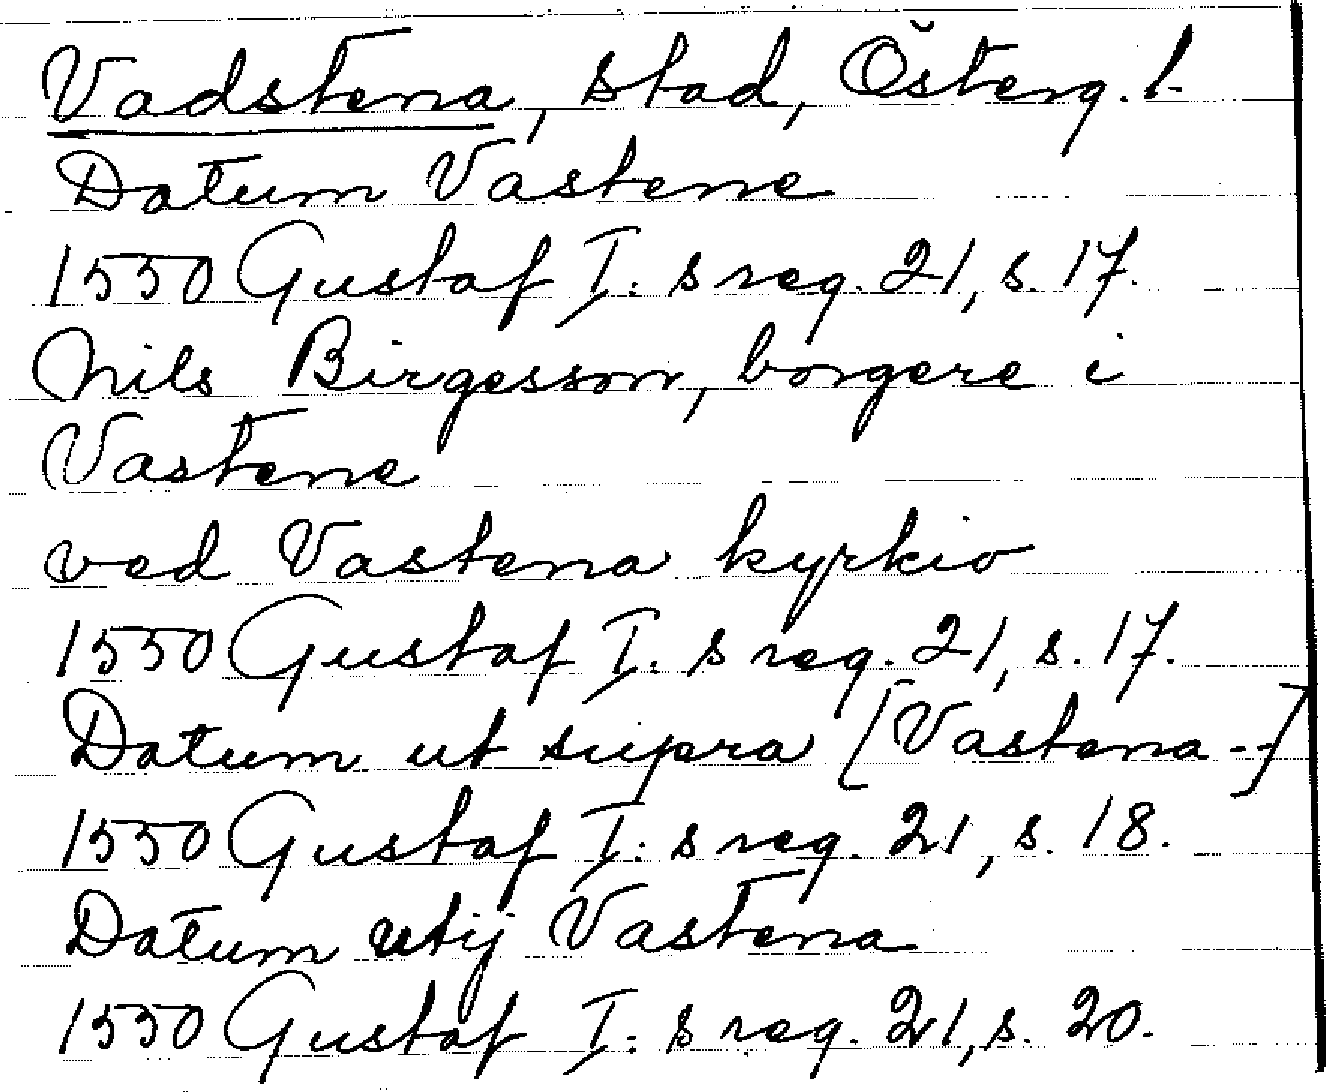 Vadstena, stad, Österg. l.
Datum Vastene
1550 Gustaf I: s reg. 21, s. 17.
Nils Birgesson, borgere i
Vastene
ved Vastena kyrkio
1550 Gustaf I: s reg. 21, s. 17.
Datum ut supra [Vastena --]
1550 Gustaf I: s reg. 21, s. 18.
Datum utij Vastena
1550 Gustaf I: s reg. 21, s. 20.